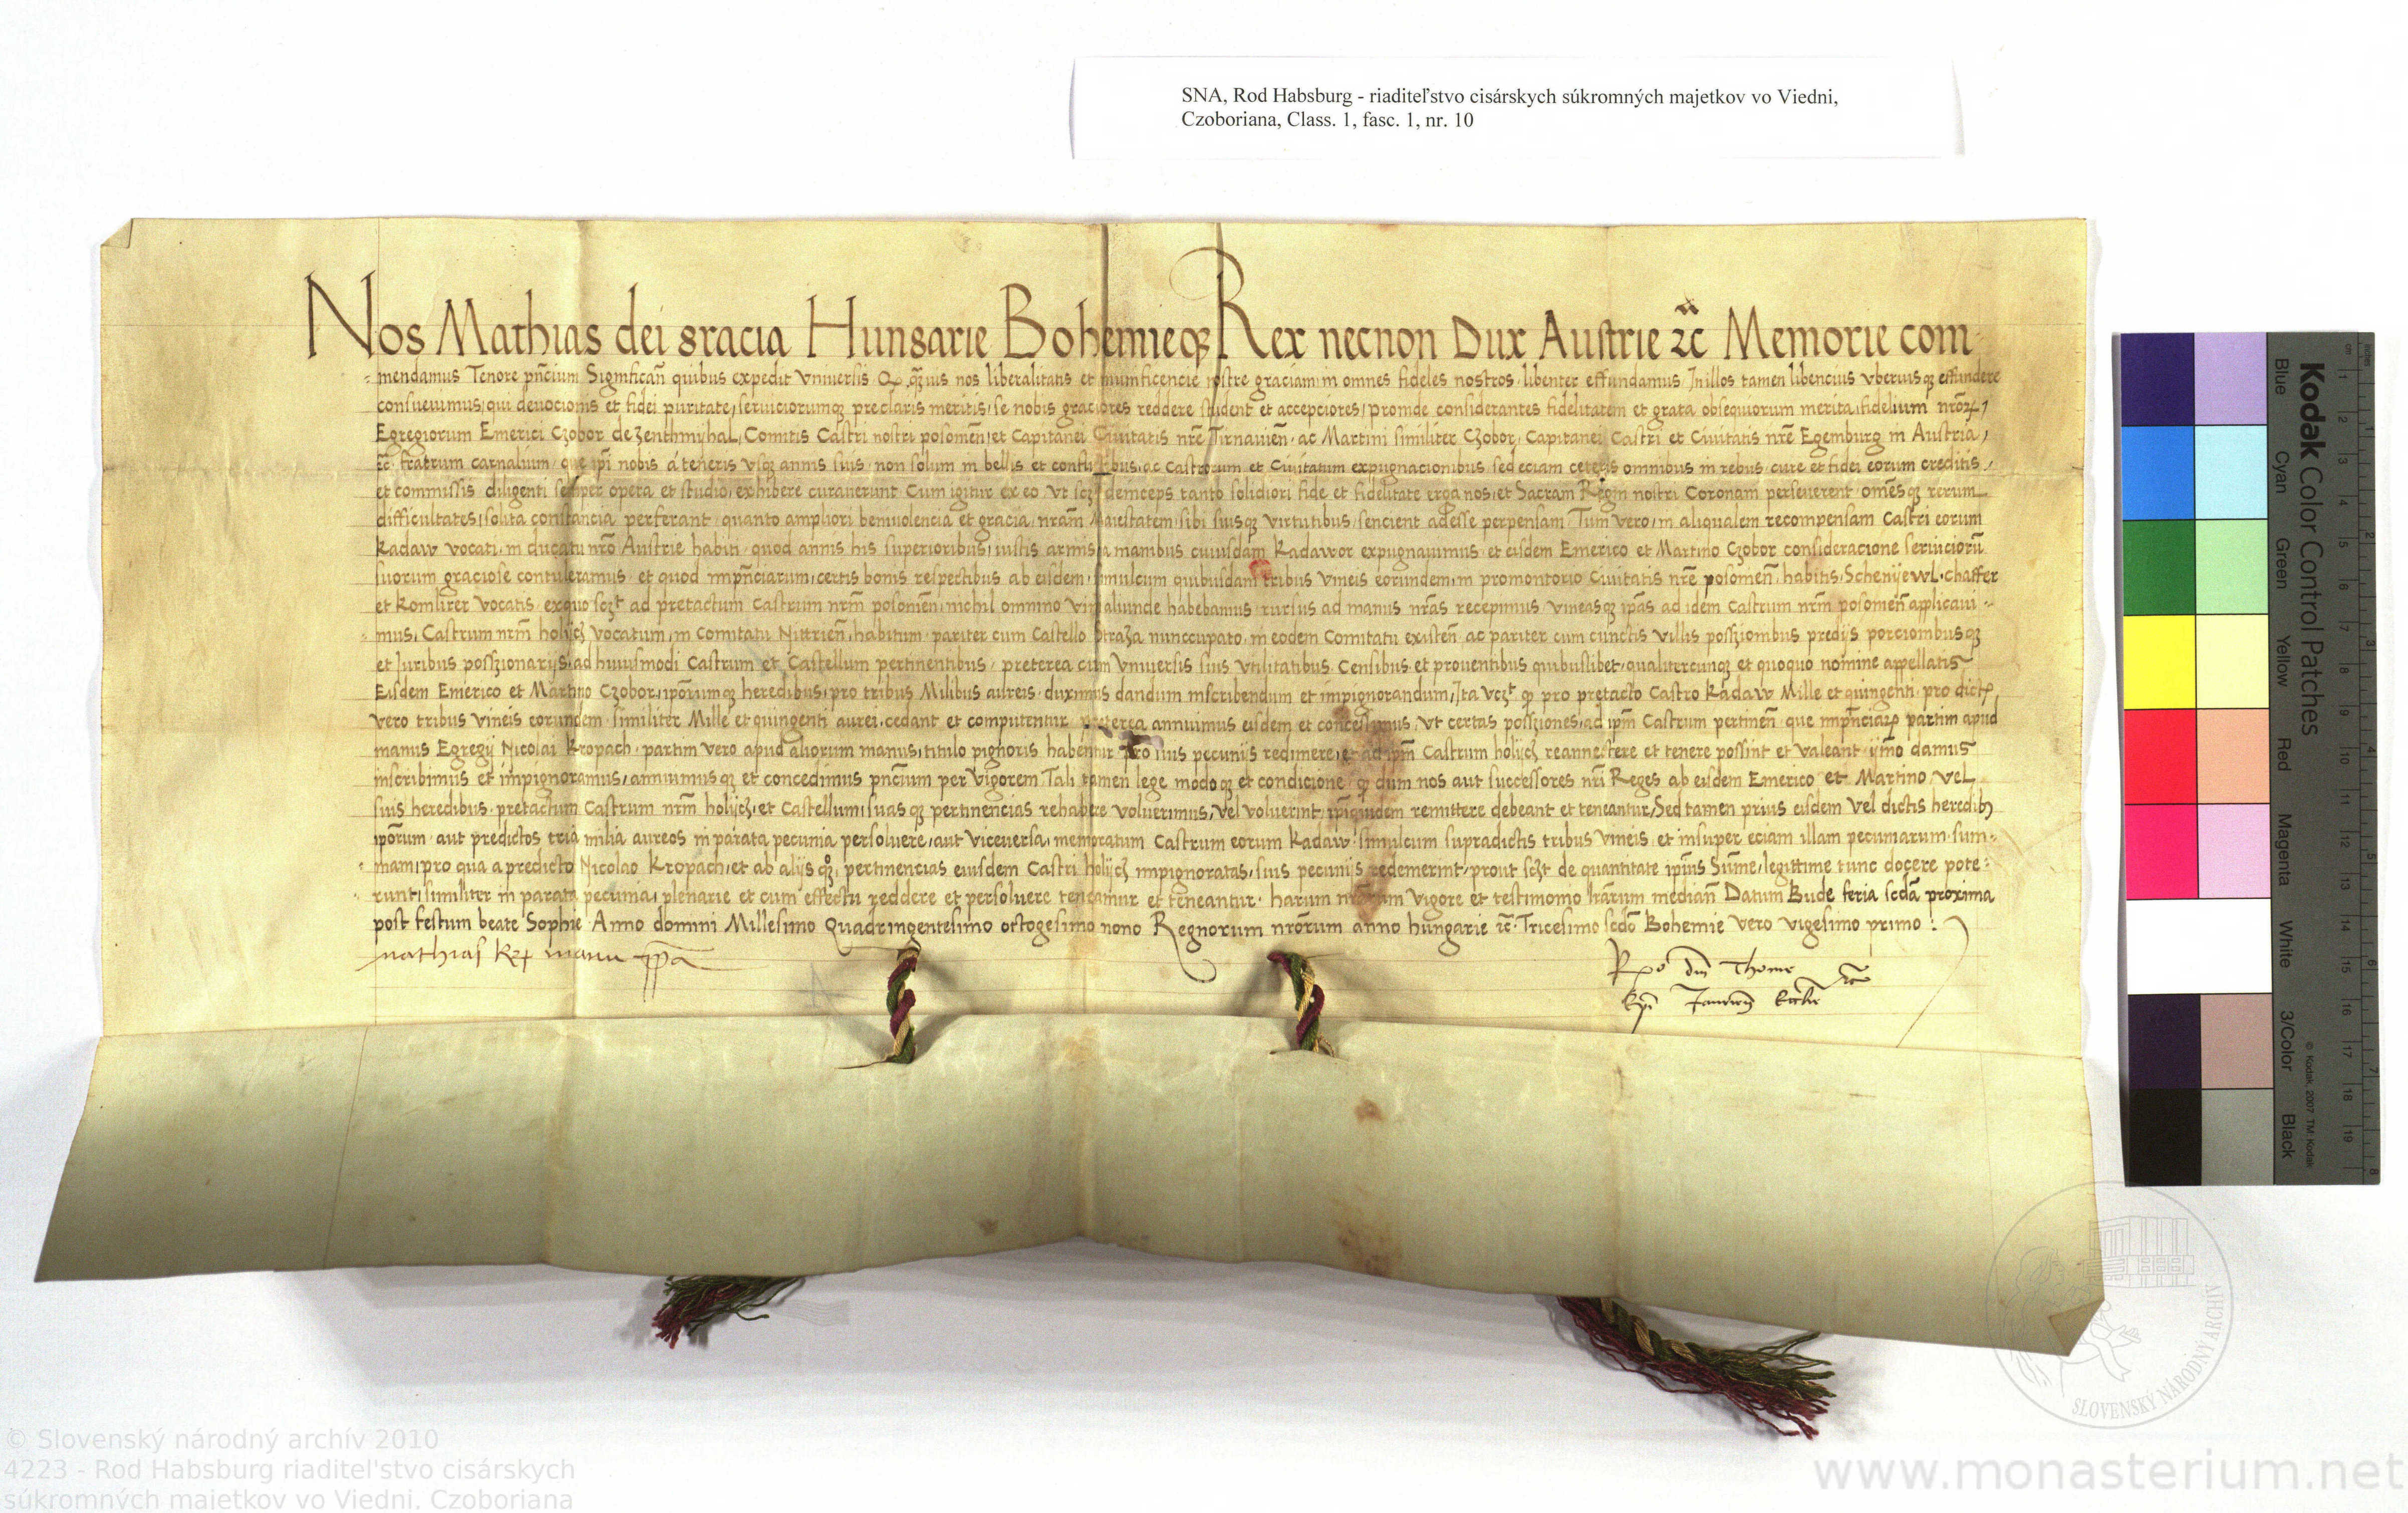 SNA, Rod Habsburg - riaditeľstvo cisárskych súkromných majetkov vo Viedni,
Czoboriana, Class. 1, fasc. 1, nr. 10
Nos Mathias dei gracia Hungarie Bohemieqꝫ Rex necnon Dux Austrie ⁊c̃ Memorie com-
mendamus Tenore pn̄cium Significan̄ quibus expedit vniuersis Qꝫ qꝫuis nos liberalitatis et munificencie nostre graciam in omnes fideles nostros libenter effundamus In illos tamen libencius vberiusqꝫ effundere
consueuimus, qui deuocionis et fidei puritate, seruiciorumqꝫ preclaris meritis, se nobis graciores reddere student et accepciores, proinde considerantes fidelitatem et grata obsequiorum merita, fidelium nr̄oꝝ,
Egregiorum Emerici Czobor de Zenthmyhal, Comitis Castri nostri posomen̄, et Capitanei Ciuitatis nr̄e Tirnauien̄ ac Martini similiter Czobor, Capitanei Castri et Ciuitatis nr̄e Egemburg in Austria,
⁊c̃ fratrum carnalium, que ip̄i nobis á teneris vsqꝫ annis suis, non solum in bellis et conflictibus, ac Castrorum et Ciuitatum expugnacionibus sed eciam ceteris omnibus in rebus, cure et fidei eorum creditis,
et commissis diligenti semper opera et studio, exhibere curauerunt Cum igitur ex eo, vt scꝫt deinceps tanto solidiori fide et fidelitate erga nos, et Sacram Regni nostri Coronam perseuerent, om̄esqꝫ rerum
difficultates, solita constancia perferant, quanto ampliori beniuolencia et gracia, nr̄am Maiestatem, sibi suisqꝫ virtutibus, sencient adesse perpensam, Tum vero, in aliqualem recompensam Castri eorum
Kadaw vocati, in ducatu nr̄o Austrie habiti, quod annis his superioribus, iustis armis, a manibus cuiusdam Kadawer expugnauimus, et eisdem Emerico et Martino Czobor consideracione seruiciorū
suorum graciose contuleramus, et quod impn̄ciarum, certis bonis respectibus ab eisdem, simulcum quibusdam tribus vineis eorundem, in promontorio Ciuitatis nr̄e posomen̄ habitis, Schenyewl, chaffer
et Komlirer vocatis, ex quo scꝫt ad pretactum Castrum nr̄m posomen̄, nichil omnino vini aliunde habebamus, rursus ad manus nr̄as recepimus, vineasqꝫ ip̄as ad idem Castrum nr̄m posomen̄ applicaui-
mus, Castrum nr̄m holijcꝫ vocatum, in Comitatu Nittrien̄, habitum, pariter cum Castello Straža nunccupato, in eodem Comitatu existen̄ ac pariter cum cunctis villis possꝫionibus predijs porcionibusqꝫ
et Iuribus possꝫionarijs, ad huiusmodi Castrum et Castellum pertinentibus, preterea cum vniuersis suis vtilitatibus Censibus et prouentibus quibuslibet, qualitercunqꝫ et quoquo nomine appellatis
Eisdem Emerico et Martino Czobor, ip̄orumqꝫ heredibus, pro tribus Milibus aureis, duximus dandum inscribendum et impignorandum, Ita vcꝫt qꝫ pro pretacto Castro Kadaw Mille et quingenti, pro dictꝭ
vero tribus vineis eorundem similiter Mille et quingenti aurei, cedant et computentur, preterea annuimus eisdem et concessimus, vt certas possꝫiones, ad ip̄m Castrum pertinen̄ que impn̄ciaꝝ partim apud
manus Egregij Nicolai Kropach, partim vero apud aliorum manus, titulo pignoris habentur pro suis pecunijs redimere, et ad ip̄m Castrum holijcꝫ reannectere et tenere possint et valeant, ym̄o damus
inscribimus et impignoramus, annuimusqꝫ et concedimus pn̄cium per vigorem Tali tamen lege modoqꝫ et condicione, qꝫ dum nos aut successores nr̄i Reges ab eisdem Emerico et Martino vel
suis heredibus, pretactum Castrum nr̄m holijcꝫ, et Castellum, suasqꝫ pertinencias rehabere voluerimus, vel voluerint, ip̄i quidem remittere debeant et teneantur, Sed tamen prius eisdem vel dictis heredibꝫ
ip̄orum, aut predictos tria milia aureos in parata pecunia persoluere, aut viceuersa, memoratum Castrum eorum Kadaw, simulcum supradictis tribus vineis, et insuper eciam illam pecuniarum sum-
mam, pro qua a predicto Nicolao Kropach, et ab alijs qꝫ, pertinencias eiusdem Castri Holijcꝫ impignoratas, suis pecunijs redemerint, prout scꝫt de quantitate ip̄ius Sum̄e, legittime tunc docere pote-
runt, similiter in parata pecunia, plenarie et cum effectu reddere et persoluere teneamur et teneantur, harum nr̄arum vigore et testimonio lr̄arum median̄ Datum Bude feria scd̄a proxima
post festum beate Sophie Anno domini Millesimo Quadringentesimo octogesimo nono Regnorum nr̄orum anno hungarie ⁊c̃ Tricesimo scd̄o Bohemie vero vigesimo primo :
Mathias Rex manu ppa
Rꝑo dn̄i Thome
Ep̄i Jaurien̄ ⁊c̃
Kodak Color Control Patches
Blue Cyan Green Yellow Red Magenta White 3/Color Black
© Kodak, 2007 TM: Kodak
© Slovenský národný archív 2010
4223 - Rod Habsburg riaditel'stvo cisárskych
súkromných majetkov vo Viedni. Czoboriana
SLOVENSKÝ NÁRODNÝ ARCHÍV
www.monasterium.net